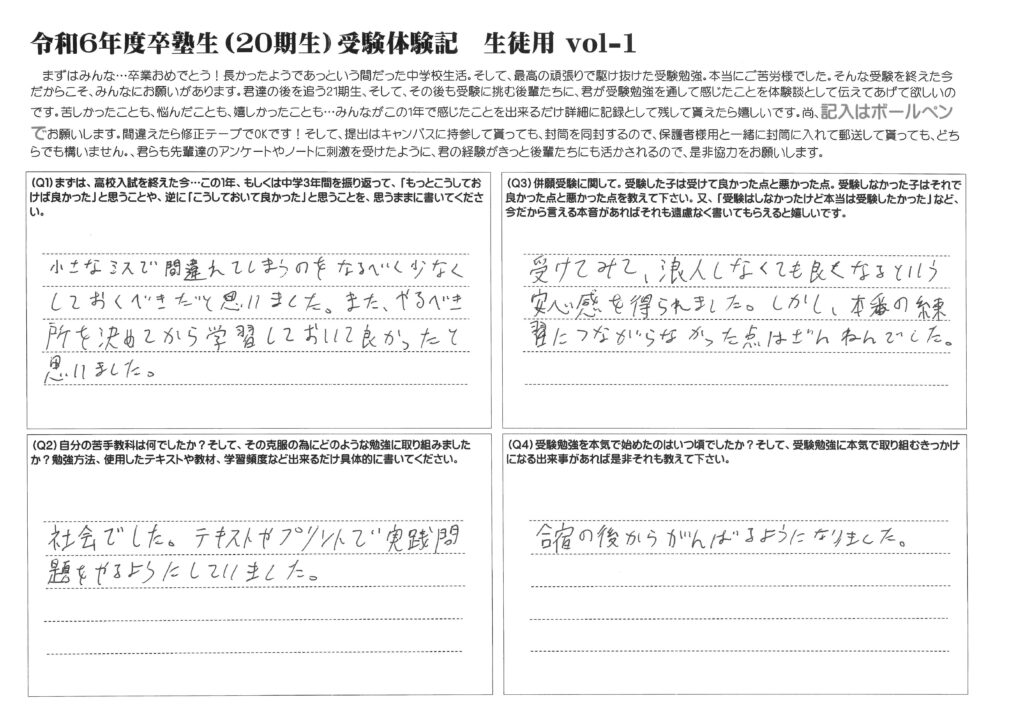 令和6年度卒塾生(20期生)受験体験記　生徒用 vol-1
まずはみんな…卒業おめでとう！長かったようであっという間だった中学校生活。そして、最高の頑張りで駆け抜けた受験勉強。本当にご苦労様でした。そんな受験を終えた今
だからこそ、みんなにお願いがあります。君達の後を追う21期生、そして、その後も受験に挑む後輩たちに、君が受験勉強を通して感じたことを体験談として伝えてあげて欲しいの
です。苦しかったことも、悩んだことも、嬉しかったことも…みんながこの1年で感じたことを出来るだけ詳細に記録として残して貰えたら嬉しいです。尚、記入はボールペン
でお願いします。間違えたら修正テープでOKです！そして、提出はキャンパスに持参して貰っても、封筒を同封するので、保護者様用と一緒に封筒に入れて郵送して貰っても、どち
らでも構いません。、君らも先輩達のアンケートやノートに刺激を受けたように、君の経験がきっと後輩たちにも活かされるので、是非協力をお願いします。
(Q1)まずは、高校入試を終えた今…この1年、もしくは中学3年間を振り返って、「もっとこうしてお
けば良かった」と思うことや、逆に「こうしておいて良かった」と思うことを、思うままに書いてくださ
い。
小さなミスで間違れてしまうのをなるべく少なく
しておくべきだと思いました。また、やるべき
所を決めてから学習しておいて良かったと
思いました。
(Q2)自分の苦手教科は何でしたか？そして、その克服の為にどのような勉強に取り組みました
か？勉強方法、使用したテキストや教材、学習頻度など出来るだけ具体的に書いてください。
社会でした。テキストやプリントで実践問
題をやるようにしていました。
(Q3)併願受験に関して。受験した子は受けて良かった点と悪かった点。受験しなかった子はそれで
良かった点と悪かった点を教えて下さい。又、「受験はしなかったけど本当は受験したかった」など、
今だから言える本音があればそれも遠慮なく書いてもらえると嬉しいです。
受けてみて、浪人しなくても良くなるという
安心感を得られました。しかし、本番の練
習につながらなかった点はざんねんでした。
(Q4)受験勉強を本気で始めたのはいつ頃でしたか？そして、受験勉強に本気で取り組むきっかけ
になる出来事があれば是非それも教えて下さい。
合宿の後からがんばるようになりました。